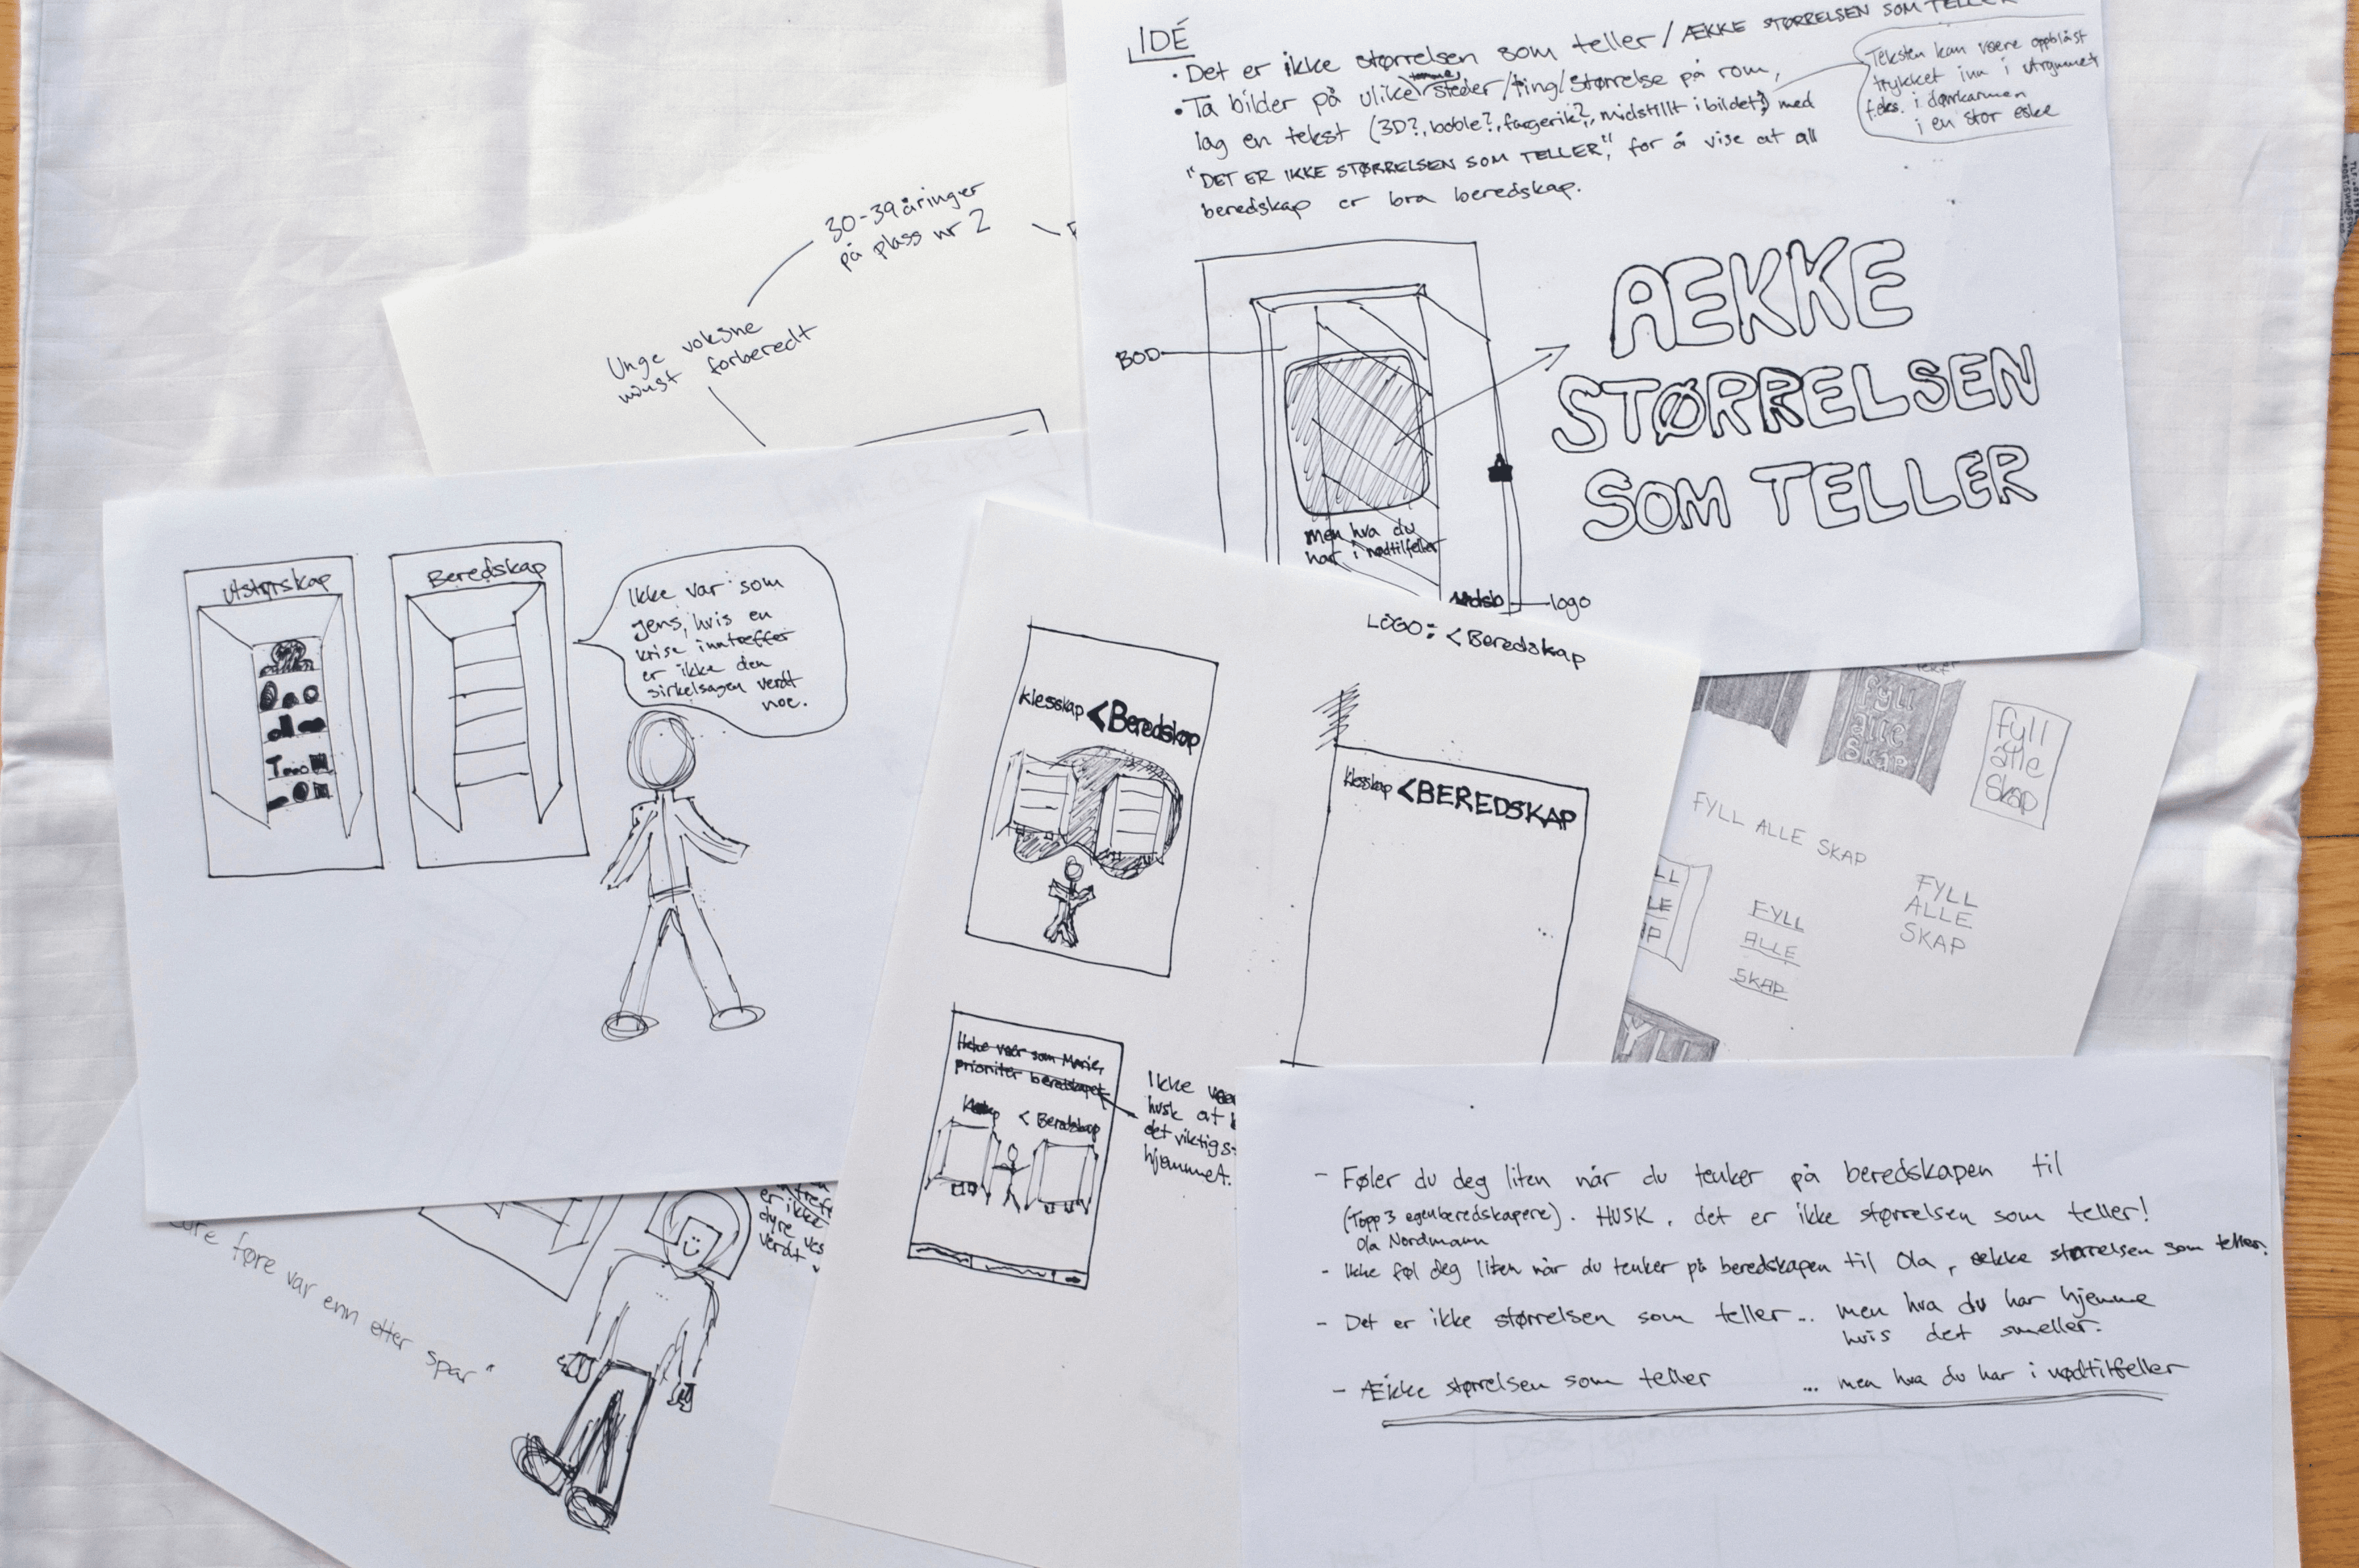 IDÉ
• Det er ikke størrelsen som teller / ÆKKE STØRRELSEN SOM TELLER
• Ta bilder på ulike tomme steder/ting/størrelse på rom,
lag en tekst (3D?, boble?, fargerik?, midstillt i bildet?) med
"DET ER IKKE STØRRELSEN SOM TELLER", for å vise at all
beredskap er bra beredskap.
Teksten kan være oppblåst
trykket inn i utrymmet
f.eks. i dørkarmen
i en stor eske
BOD
men hva du
har i nødtilfeller
logo
ÆKKE
STØRRELSEN
SOM TELLER
30-39 åringer
på plass nr 2
Unge voksne
minst forberedt
Utstyrskap
Beredskap
Ikke vær som
Jens, hvis en
krise inntreffer
er ikke den
sirkelsagen verdt
noe.
LOGO: <Beredskap
klesskap <Beredskap
klesskap <BEREDSKAP
Ikke vær som Marie,
prioriter beredskapet
< Beredskap
Ikke
husk at
det viktigs
hjemmet.
fyll
alle
skap
fyll
alle
skap
FYLL ALLE SKAP
FYLL
ALLE
SKAP
FYLL
ALLE
SKAP
LL
LE
AP
YLL
er ikke
dyre ves
verdt
føre var enn etter spar"
- Føler du deg liten når du tenker på beredskapen til
(Topp 3 egenberedskapere). HUSK, det er ikke størrelsen som teller!
Ola Nordmann
- Ikke føl deg liten når du tenker på beredskapen til Ola, ække størrelsen som teller.
- Det er ikke størrelsen som teller... men hva du har hjemme
hvis det smeller.
- Ække størrelsen som teller ... men hva du har i nødtilfeller